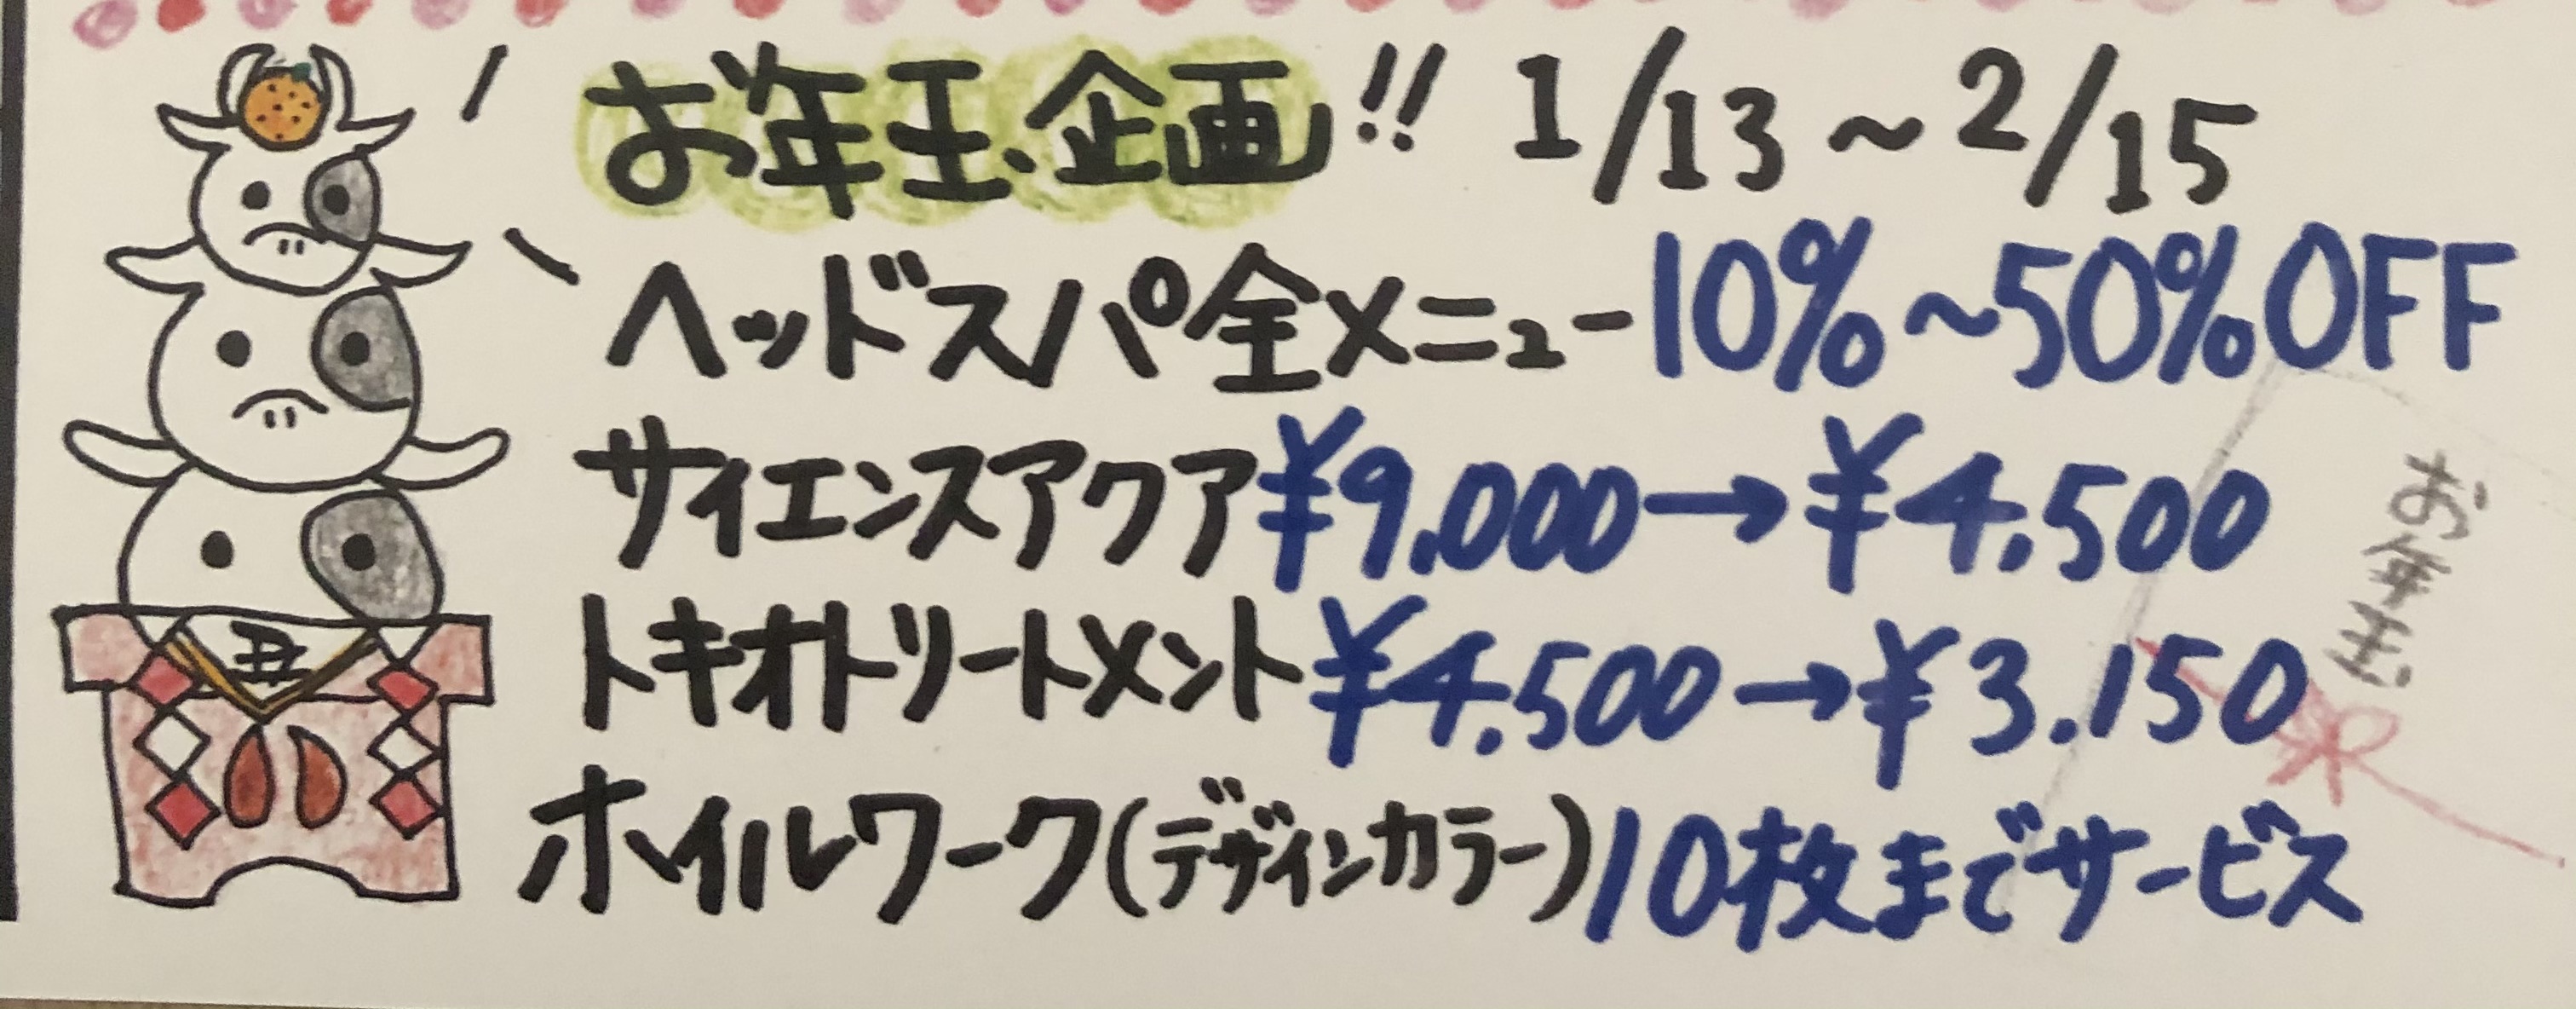 お年玉企画!! 1/13~2/15
ヘッドスパ全メニュー10%~50%OFF
サイエンスアクア¥9,000→¥4,500
トキオトリートメント¥4,500→¥3,150
ホイルワーク(デザインカラー)10枚までサービス
丑
お年玉